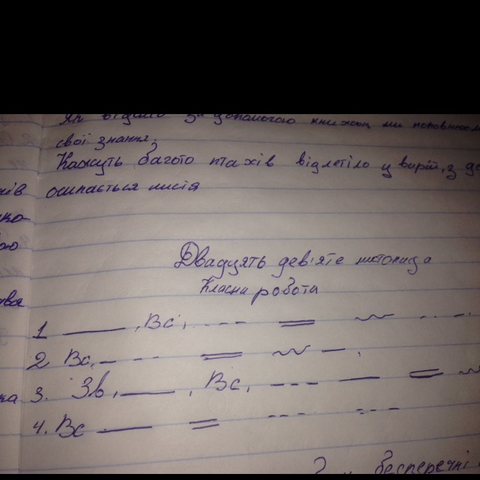 Як відомо за допомогою книжок ми поповнюєм
свої знання;
Кажуть багато птахів відлетіло у вирій, з де
осипається листя
Двадцять дев'яте листопада
Класна робота
1 ——— , Вс, - - - ═══ ~~~ . _ . _
2 Вс, — - - ═══ ~~ — .
3. Зв, ——— , Вс, - - - —— ═══ ~~
4. Вс —— ═══ - - - - - -
безперечні